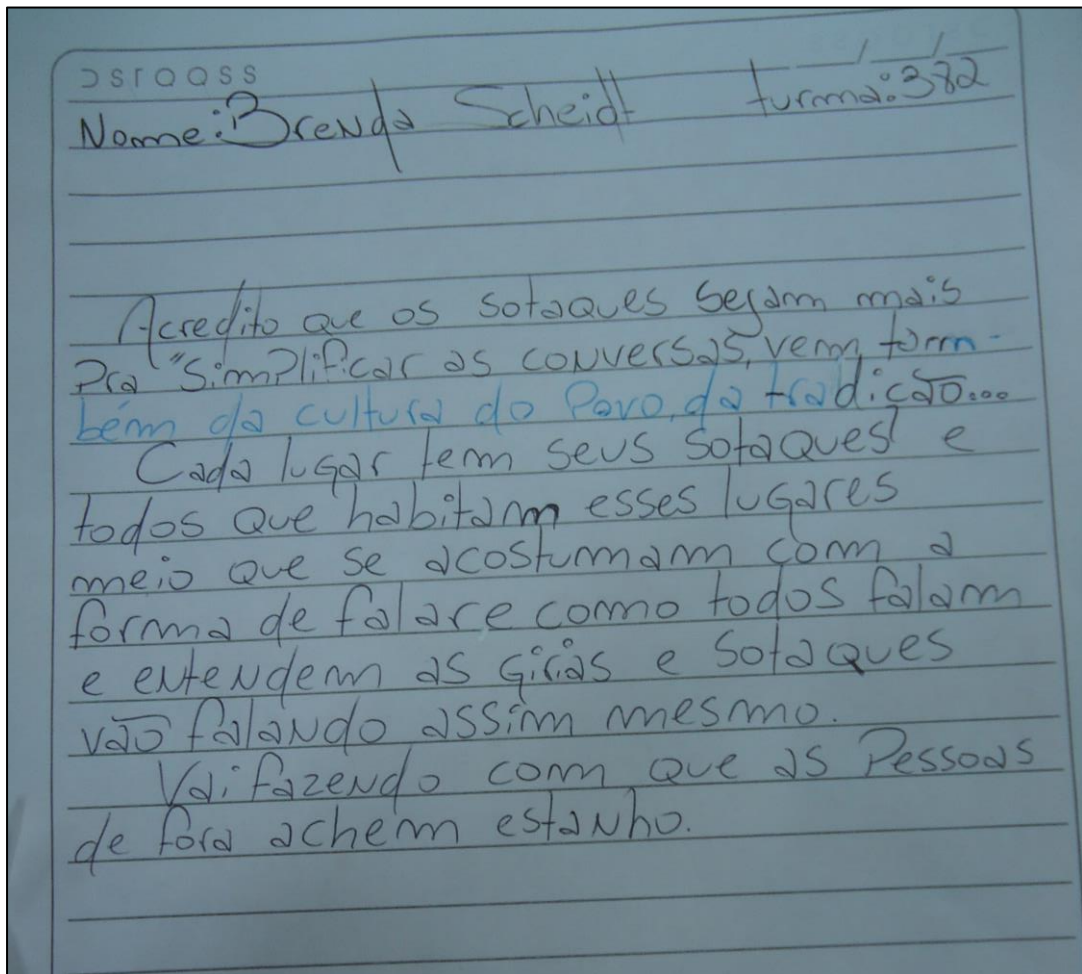 Nome: Brenda Scheidt turma: 382
Acredito que os sotaques sejam mais
Pra "Simplificar as conversas, vem tam-
bém da cultura do Povo, da tradição...
Cada lugar tem seus sotaques e
todos que habitam esses lugares
meio que se acostumam com a
forma de falar e como todos falam
e entendem as gírias e sotaques
vão falando assim mesmo.
Vai fazendo com que as Pessoas
de fora achem estanho.